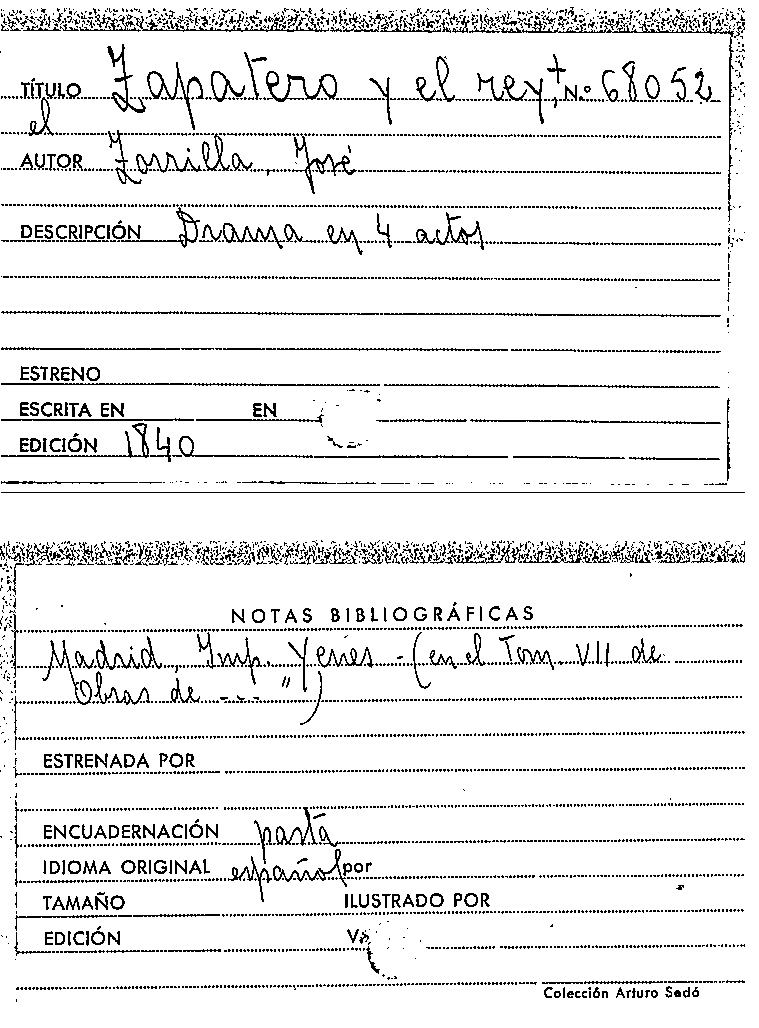 TÍTULO Zapatero y el rey, Nº 68052
el
AUTOR Zorrilla, José
DESCRIPCIÓN Drama en 4 actos
ESTRENO
ESCRITA EN EN
EDICIÓN 1840
NOTAS BIBLIOGRÁFICAS
Madrid, Imp. Yenes - (en el Tom. VII de
Obras de --- ")
ESTRENADA POR
ENCUADERNACIÓN pasta
IDIOMA ORIGINAL español por
TAMAÑO ILUSTRADO POR
EDICIÓN
Colección Arturo Sedó